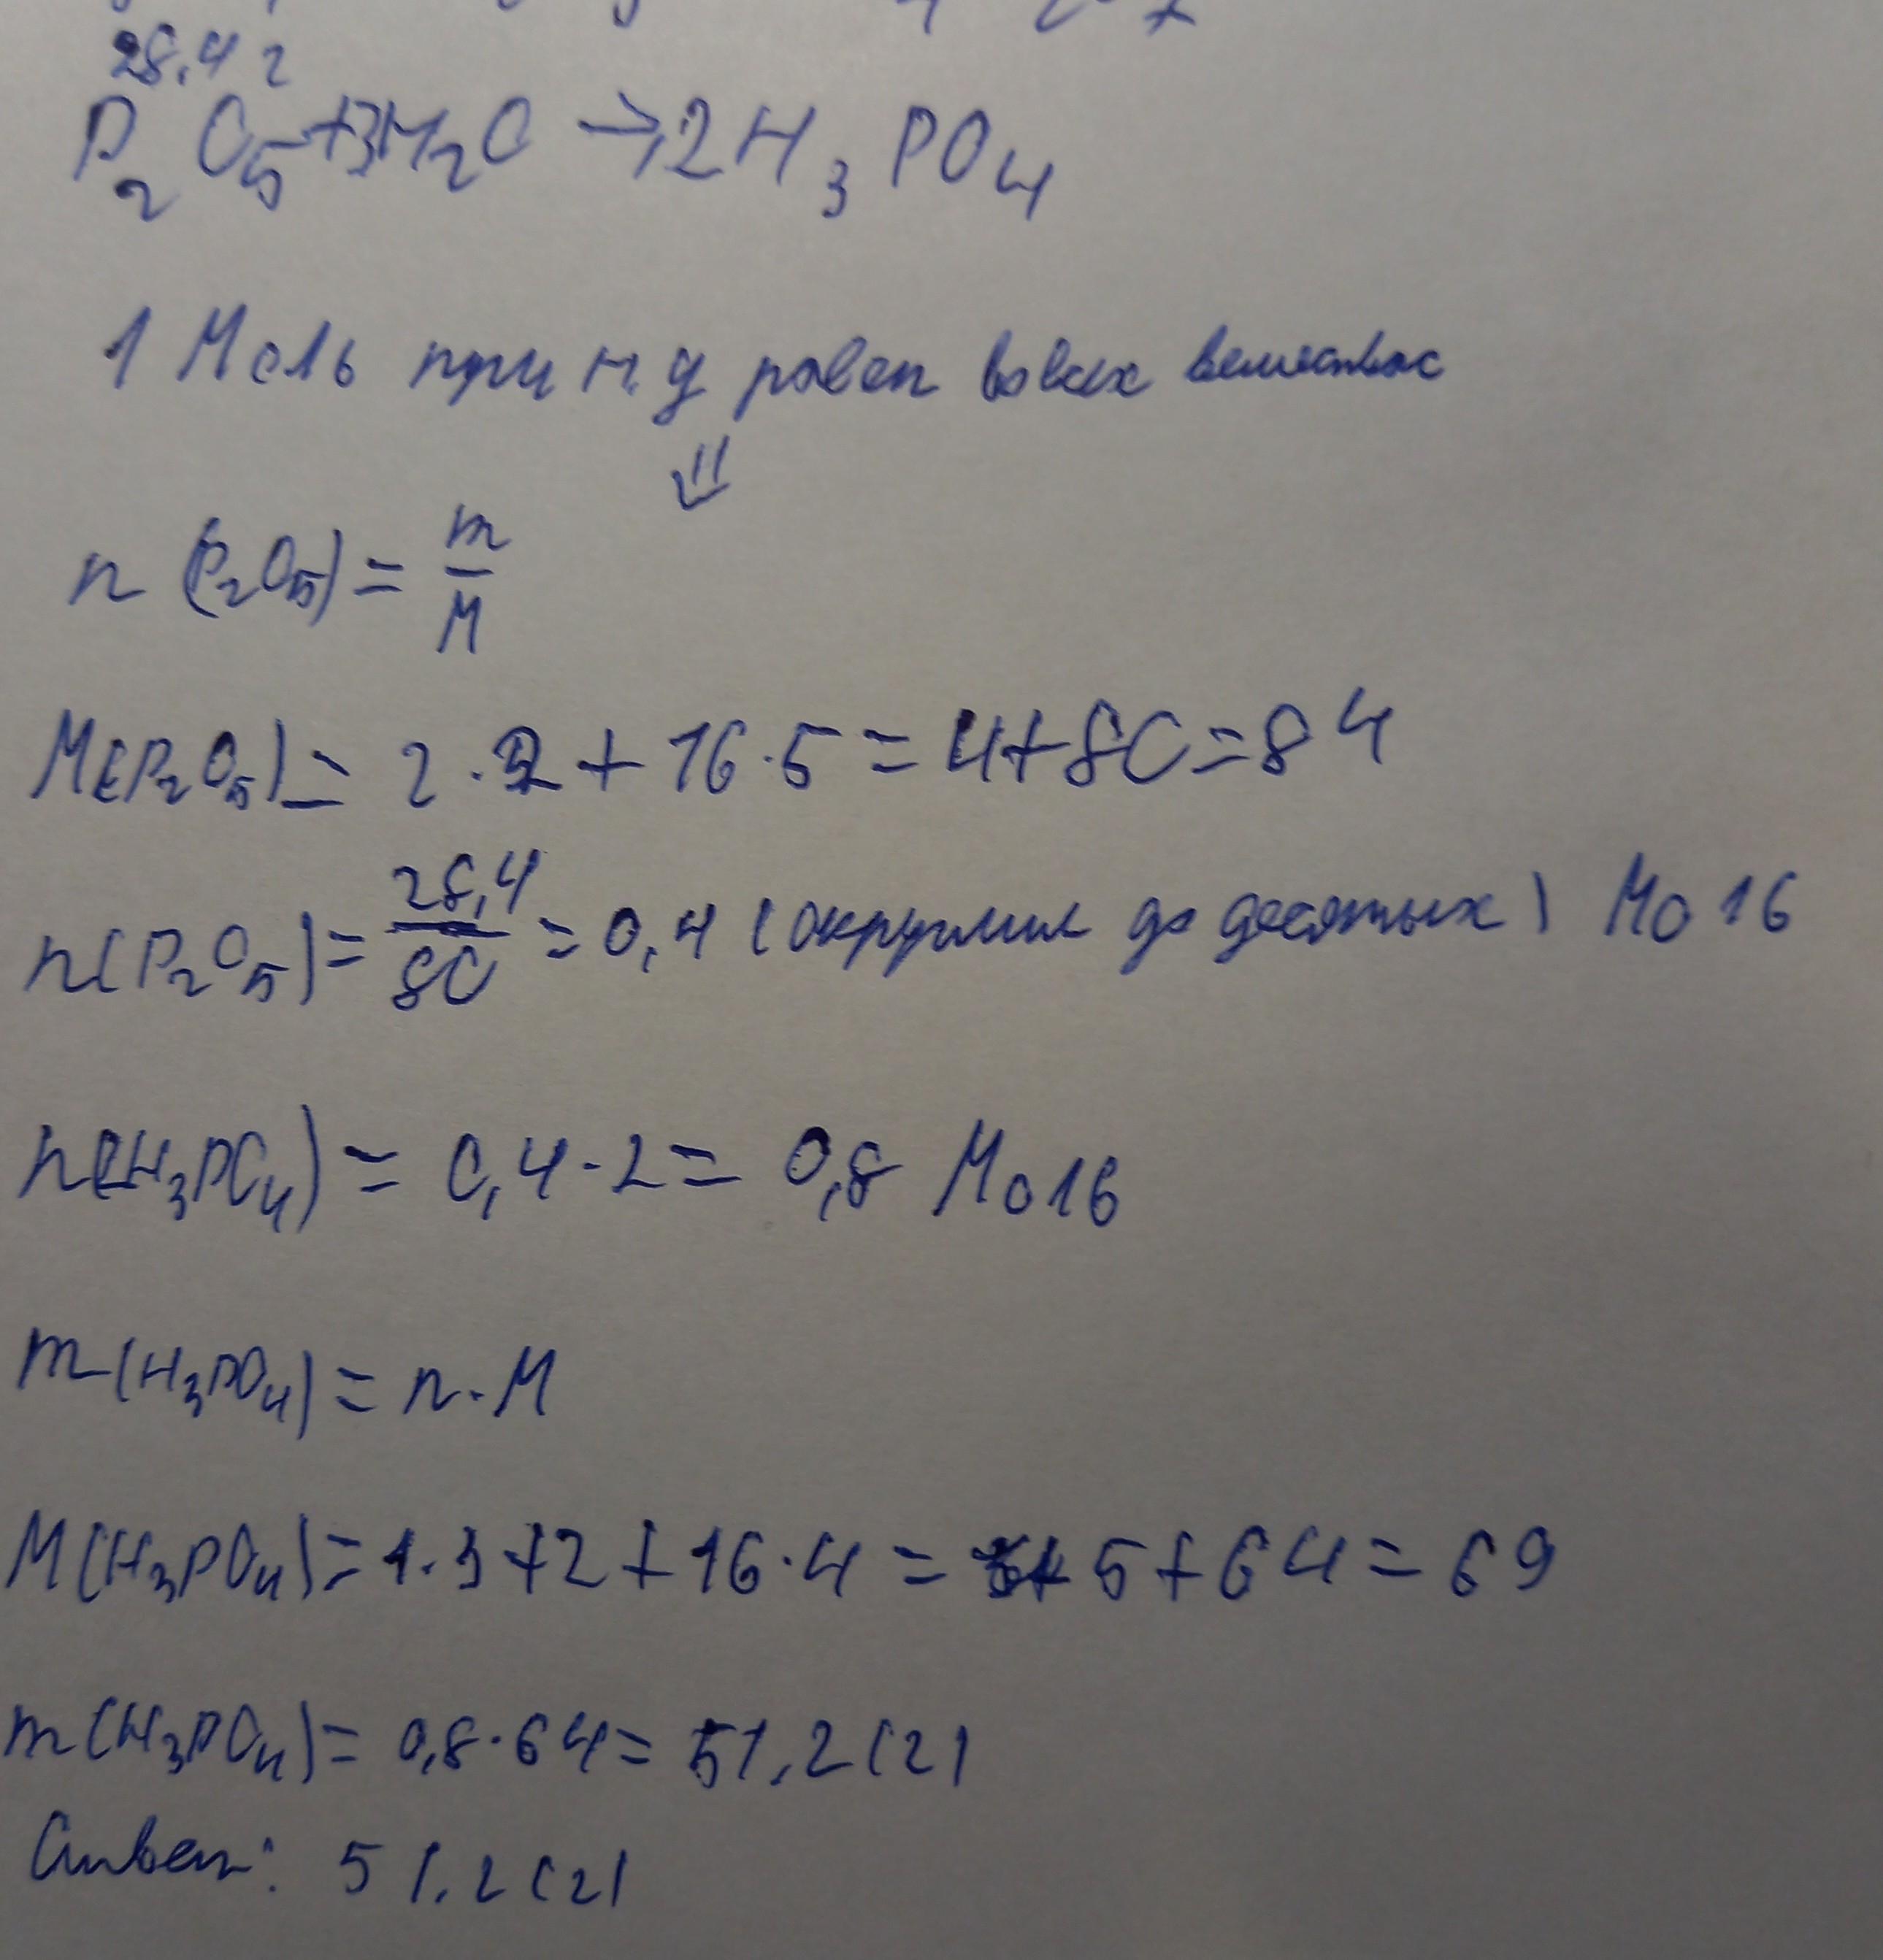 28,4 г
P₂O₅+3H₂O → 2H₃PO₄
1 Моль при н.у равен во всех веществах
⇓
n (P₂O₅) = m/M
M(P₂O₅) = 2·2 + 16·5 = 4+80 = 84
n(P₂O₅) = 28,4/80 = 0,4 (округлил до десятых) Моль
n(H₃PO₄) = 0,4·2 = 0,8 Моль
m(H₃PO₄) = n·M
M(H₃PO₄) = 1·3+2+16·4 = 5+64 = 69
m(H₃PO₄) = 0,8·64 = 51,2 (г)
Ответ: 51,2 (г)